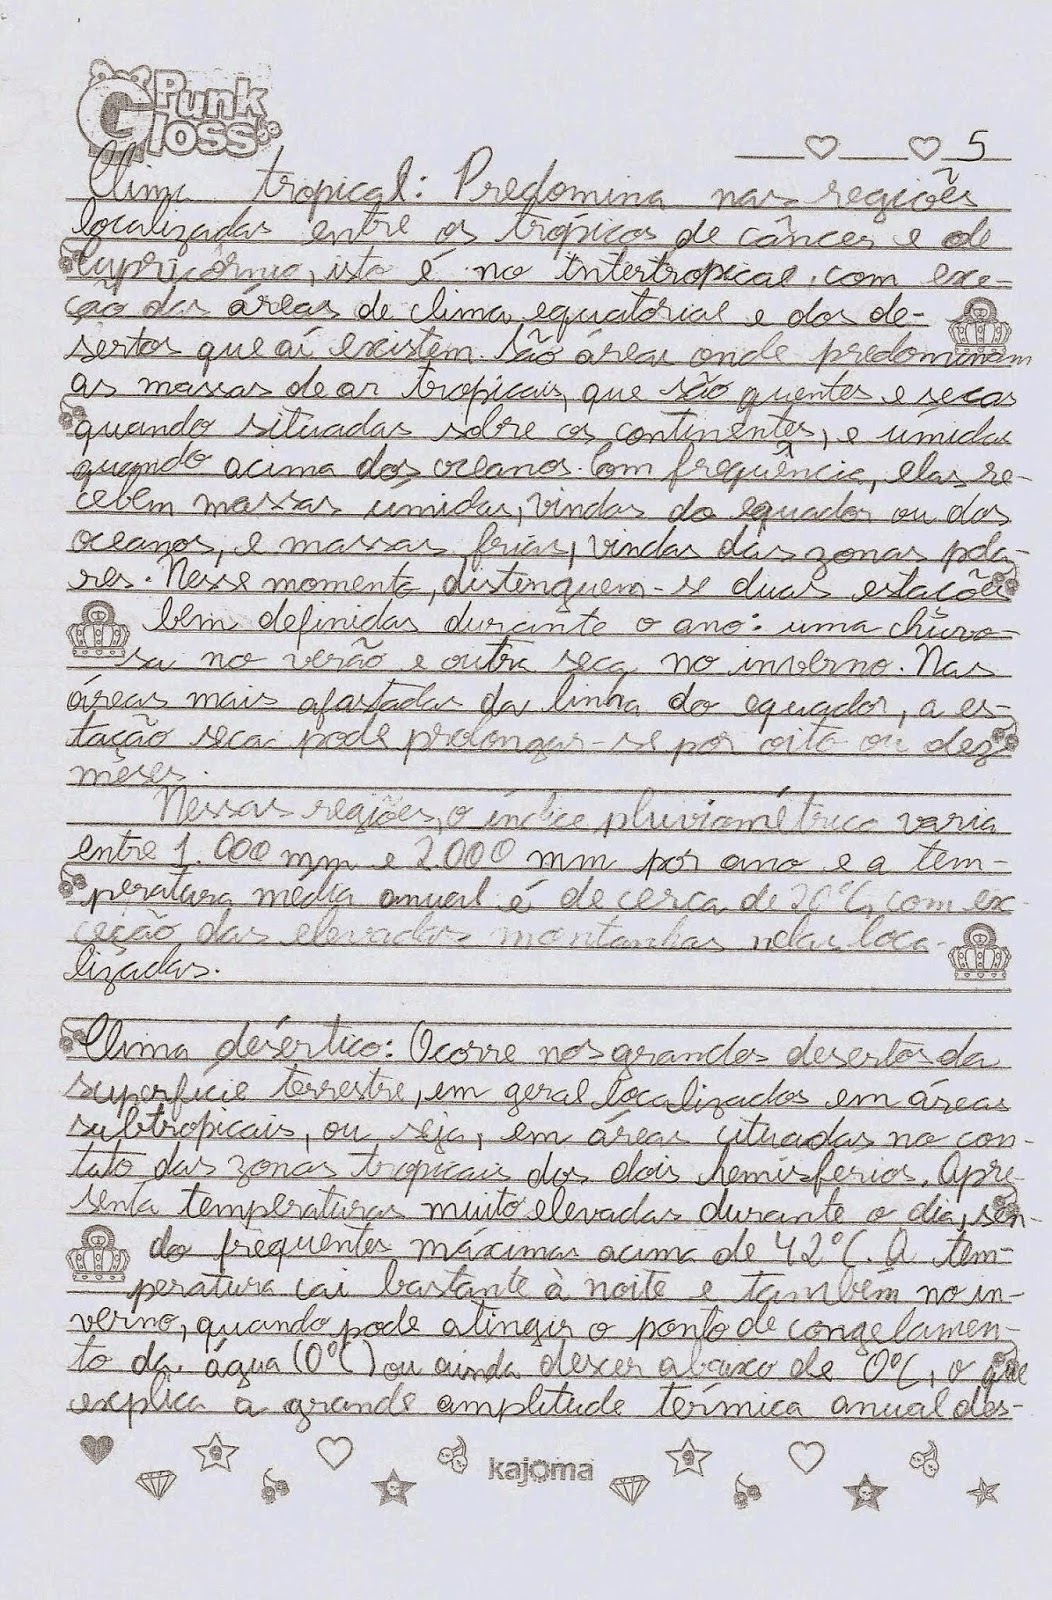 Punk
Gloss
5
Clima tropical: Predomina nas regiões
localizadas entre os trópicos de câncer e de
Capricórnio, isto é no intertropical, com exce-
ção das áreas de clima equatorial e dos de-
sertos que aí existem. São áreas onde predominam
as massas de ar tropicais, que são quentes e secas
quando situadas sobre os continentes, e úmidas
quando acima dos oceanos. Com frequência, elas re-
cebem massas umidas, vindas do equador ou dos
oceanos, e massas frias, vindas das zonas pola-
res. Nesse momento, distinguem-se duas estações
bem definidas durante o ano: uma chuvo-
sa no verão e outra seca no inverno. Nas
áreas mais afastadas da linha do equador, a es-
tação seca pode prolongar-se por oito ou dez
mêses.
Nessas regiões, o índice pluviométrico varia
entre 1.000 mm e 2.000 mm por ano e a tem-
peratura média anual é de cerca de 20°C, com ex-
ceção das elevadas montanhas nelas loca-
lizadas.
Clima desértico: Ocorre nos grandes desertos da
superfície terrestre, em geral localizados em áreas
subtropicais, ou seja, em áreas situadas no con-
tato das zonas tropicais dos dois hemisférios. Apre-
senta temperaturas muito elevadas durante o dia, sen-
do frequentes máximas acima de 42°C. A tem-
peratura cai bastante à noite e também no in-
verno, quando pode atingir o ponto de congelamen-
to da água (0°C) ou ainda descer abaixo de 0°C, o que
explica a grande amplitude térmica anual des-
kajoma